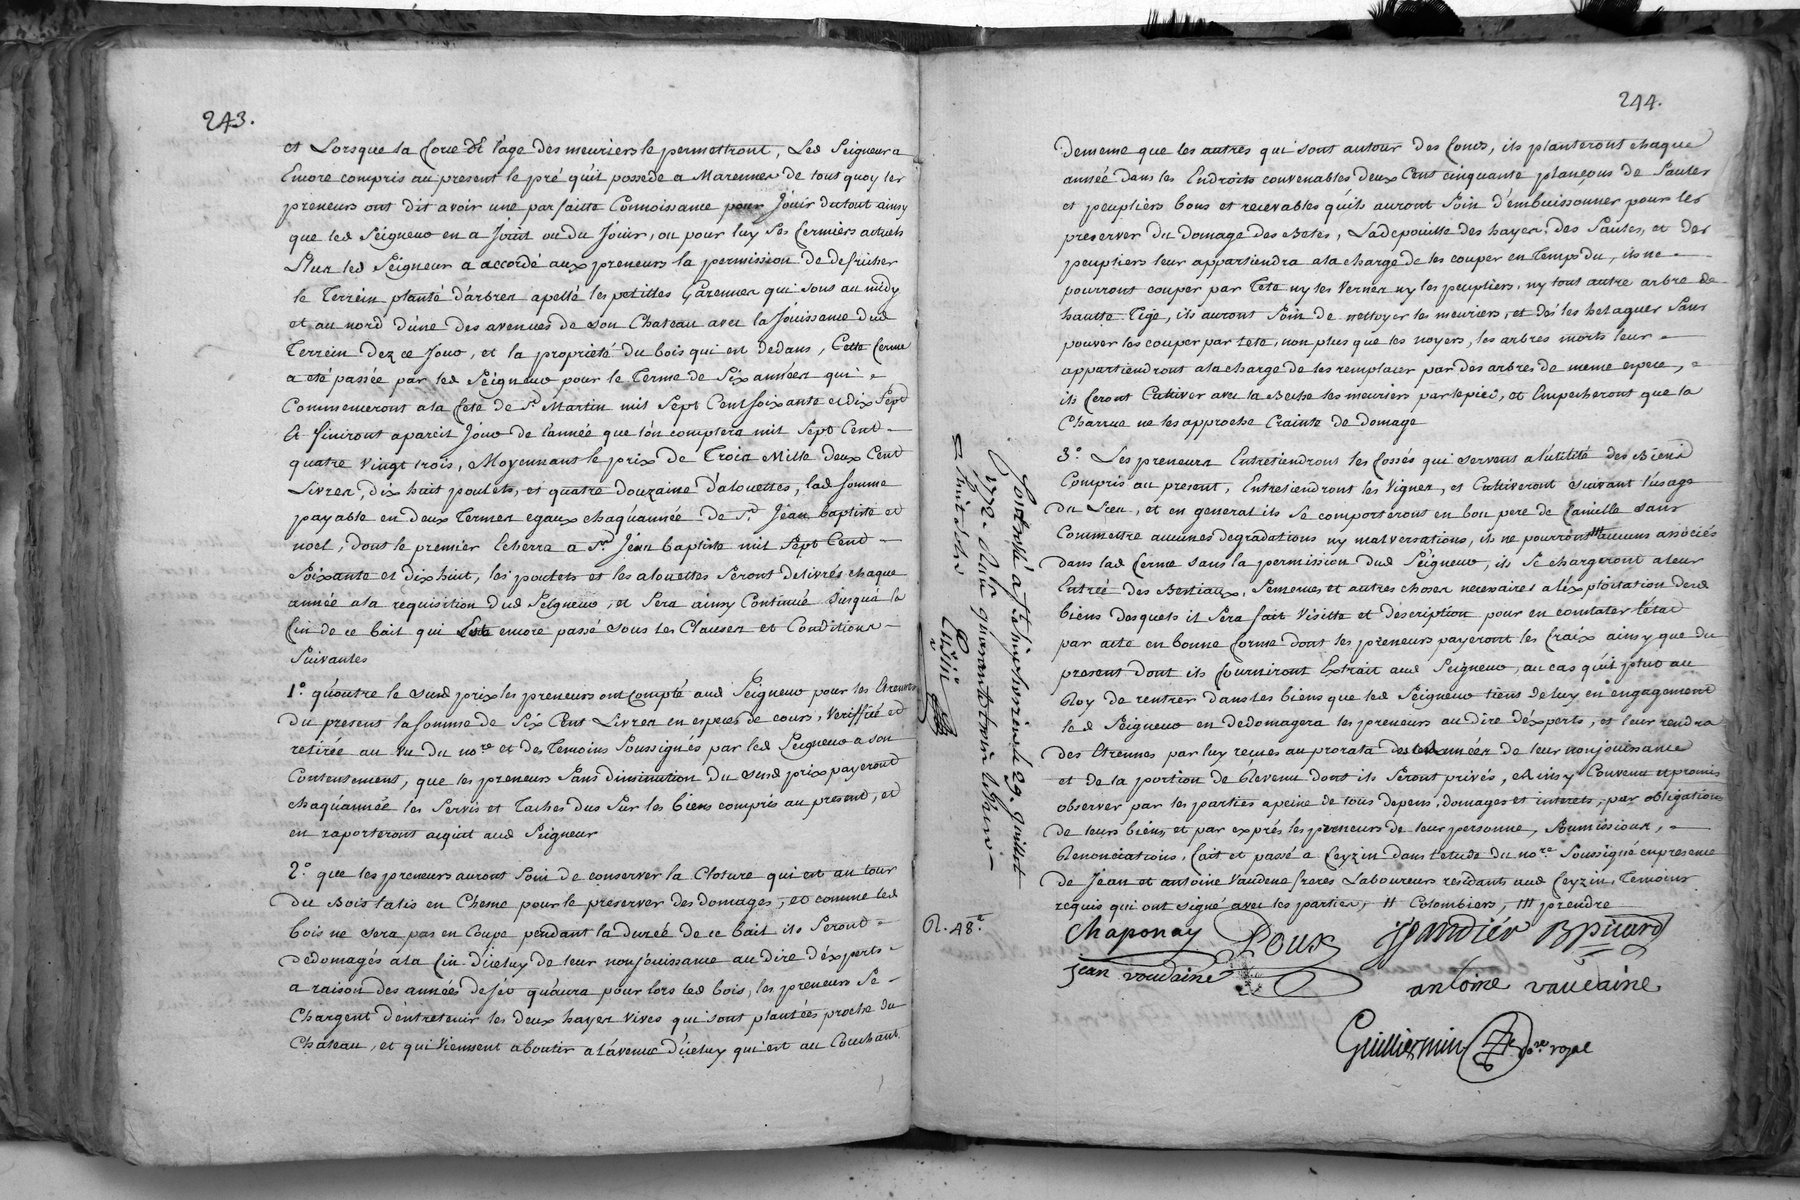 243.
et Lorsque la force et l'age des meuriers le permettront, Led Seigneur a
Encore compris au present le pré qu'il possede a Marennes de tout quoy les
preneurs ont dit avoir une parfaitte Connoissance pour Jouir du tout ainsy
que led Seigneur en a Jouit ou du Jouir, ou pour luy Ses fermiers actuels
Plus led Seigneur a accordé aux preneurs la permission de defricher
le Terrein planté d'arbres apellé les petittes Garennes qui sont au midy
et au nord d'une des avenues de son Chateau avec la Jouissance dud
Terrein dez ce Jour, et la proprieté du bois qui est dedans, Cette ferme
a eté passée par led Seigneur pour le Terme de Six années qui
Commenceront a la fete de St Martin mil Sept Cent soixante et dix Sept
Et finiront a pareil Jour de l'année que l'on comptera mil Sept Cent
quatre Vingt trois, Moyennant le prix de Trois Mille deux Cent
Livres, dix huit poulets, et quatre douzaine d'alouettes, lad somme
payable en deux Termes egaux chaqu'année de St Jean baptiste et
noel, dont le premier Echerra a St Jean baptiste mil Sept Cent
Soixante et dix huit, les poulets et les alouettes Seront delivrés chaque
année a la requisition dud Seigneur, et Sera ainsy Continué Jusqu'a la
fin de ce bail qui est encore passé sous les Clauses et Conditions
Suivantes
1° qu'outre le susd prix les preneurs ont compté aud Seigneur pour les Etrennes
du present la somme de Six Cent Livres en especes de cours, Veriffiée et
retirée au Vu du nore et des Temoins Soussignés par led Seigneur a son
Contentement, que les preneurs Sans diminution du susd prix payeront
chaqu'année les Servis et Taches dus Sur les biens compris au present, et
en raporteront acquit aud Seigneur
2° que les preneurs auront Soin de conserver la Cloture qui est au tour
du Bois talis en Chesne pour le préserver des domages, et comme led
bois ne sera pas en Coupe pendant la durée de ce bail ils Seront
dédomagés a la fin d'iceluy de leur nonjouissance au dire d'éxperts
a raison des années de sève qu'aura pour lors led bois, les preneurs Se
Chargent d'entretenir les deux hayes vives qui sont plantées proche du
Chateau, et qui Viennent aboutir a l'avenue d'iceluy qui est au Couchant
244.
demême que les autres qui sont autour des fonds, ils planteront chaque
année dans les Endroits convenables deux Cent cinquante plançons de Saules
et peupliers bons et recevables qu'ils auront Soin d'embuissonner pour les
preserver du domage des Betes, La depouille des hayes, des Saules, et des
peupliers leur appartiendra a la charge de les couper en Temps du, ils ne
pourront couper par Tete ny les Vernes ny les peupliers, ny tout autre arbre de
hautte Tige, ils auront Soin de nettoyer les meuriers, et de les helaguer Sans
pouver les couper par tete, non plus que les noyers, les arbres morts leur
appartiendront a la charge de les remplacer par des arbres de meme espece,
ils feront Cultiver avec la Beche les meuriers par le pied, et Empecheront que la
Charrue ne les approche Crainte de domage
3° Les preneurs Entretiendront les fossés qui servent a l'utilité des Biens
Compris au present, Entretiendront les Vignes, et Cultiveront suivant l'usage
du Lieu, et en general ils Se comporteront en bon pere de famille sans
Commettre aucunes degradations ny malversations, ils ne pourront III aucuns associés
dans lad ferme sans la permission dud Seigneur, ils Se chargeront a leur
Entrée des Bestiaux, Semences et autres choses necessaires a l'éxploitation desd
biens desquels il Sera fait Visitte et description pour en constater l'état
par acte en bonne forme dont les preneurs payeront les fraix ainsy que du
present dont ils fourniront Extrait aud Seigneur, au cas qu'il plut au
Roy de rentrer dans les biens que led Seigneur tient de luy en engagement
led Seigneur en dedomagera les preneurs au dire d'éxperts, et leur rendra
des Etrennes par luy reçues au prorata des années de leur nonjouissance
et de la portion de Revenu dont ils Seront privés, Ainsy Convenu et promis
observer par les parties a peine de tous depens, domages et interets, par obligation
de leurs biens, et par exprés les preneurs de leur personne, Soumissions,
Renonciations, fait et passé a feyzin dans l'etude du nore Soussigné en presence
de Jean et antoine Vaudene freres Laboureurs residants aud feyzin, Temoins
requis qui ont signé avec les parties, II Colombiers, III prendre
Chaponay Doux Jgandier Bpicard
jean voudaine antoine vaudaine
Guilliermin nore royal
R. 48.e
Controllé a St Simphorien le 29. juillet
1772. Recu quarante trois livres
huit sols